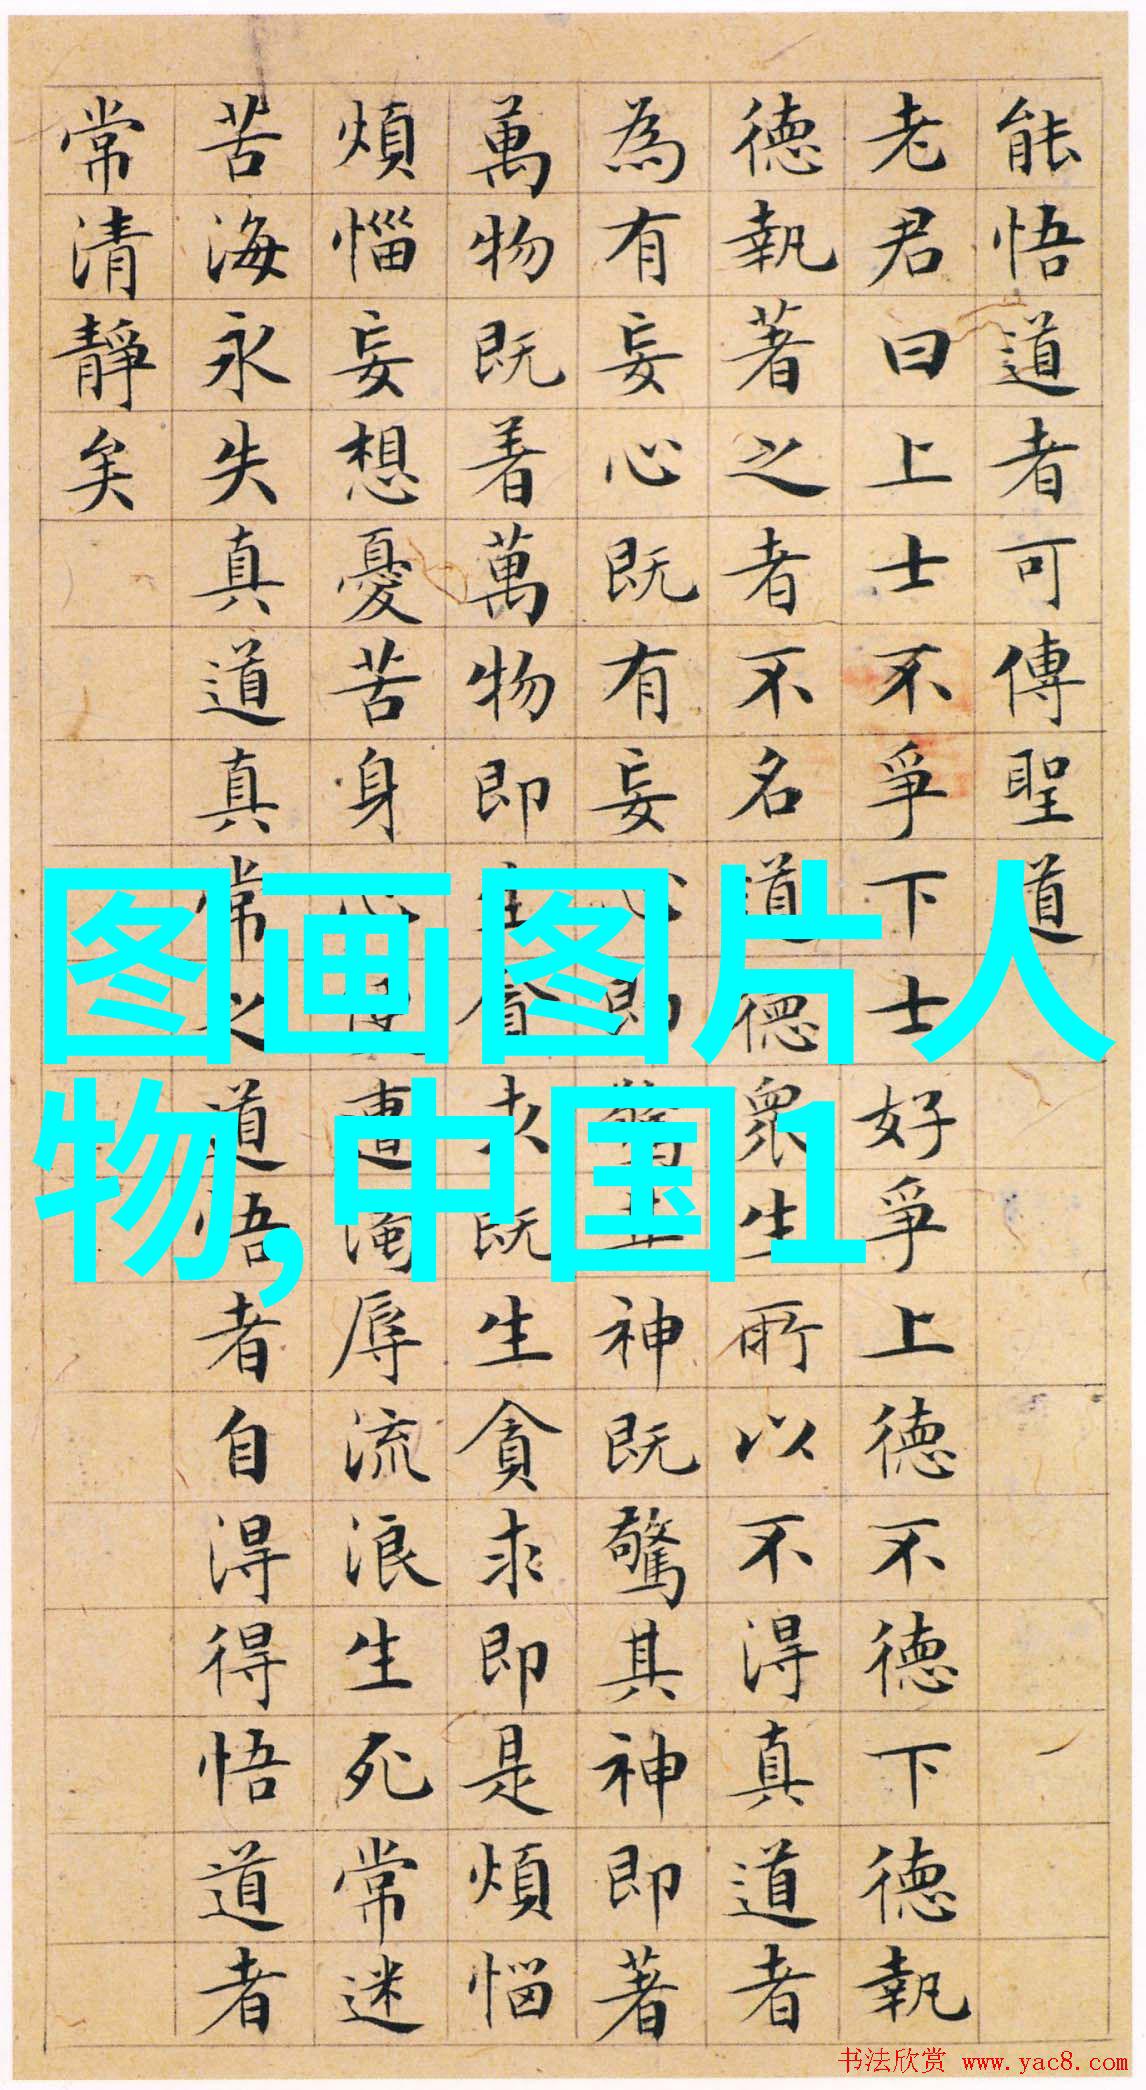 能悟道者可傳聖道
老君曰上士不爭下士好爭上德不德下德執
德執著之者不名道德眾生所以不得真道者
為有妄心既有妄心即驚其神既驚其神即著
萬物既着萬物即生貪求既生貪求即是煩惱
煩惱妄想憂苦身心便遭濁辱流浪生死常迷
苦海永失真道真常之道悟者自得得悟道者
常清靜矣
图画图片人
物,中国1
书法欣赏 www.yac8.com